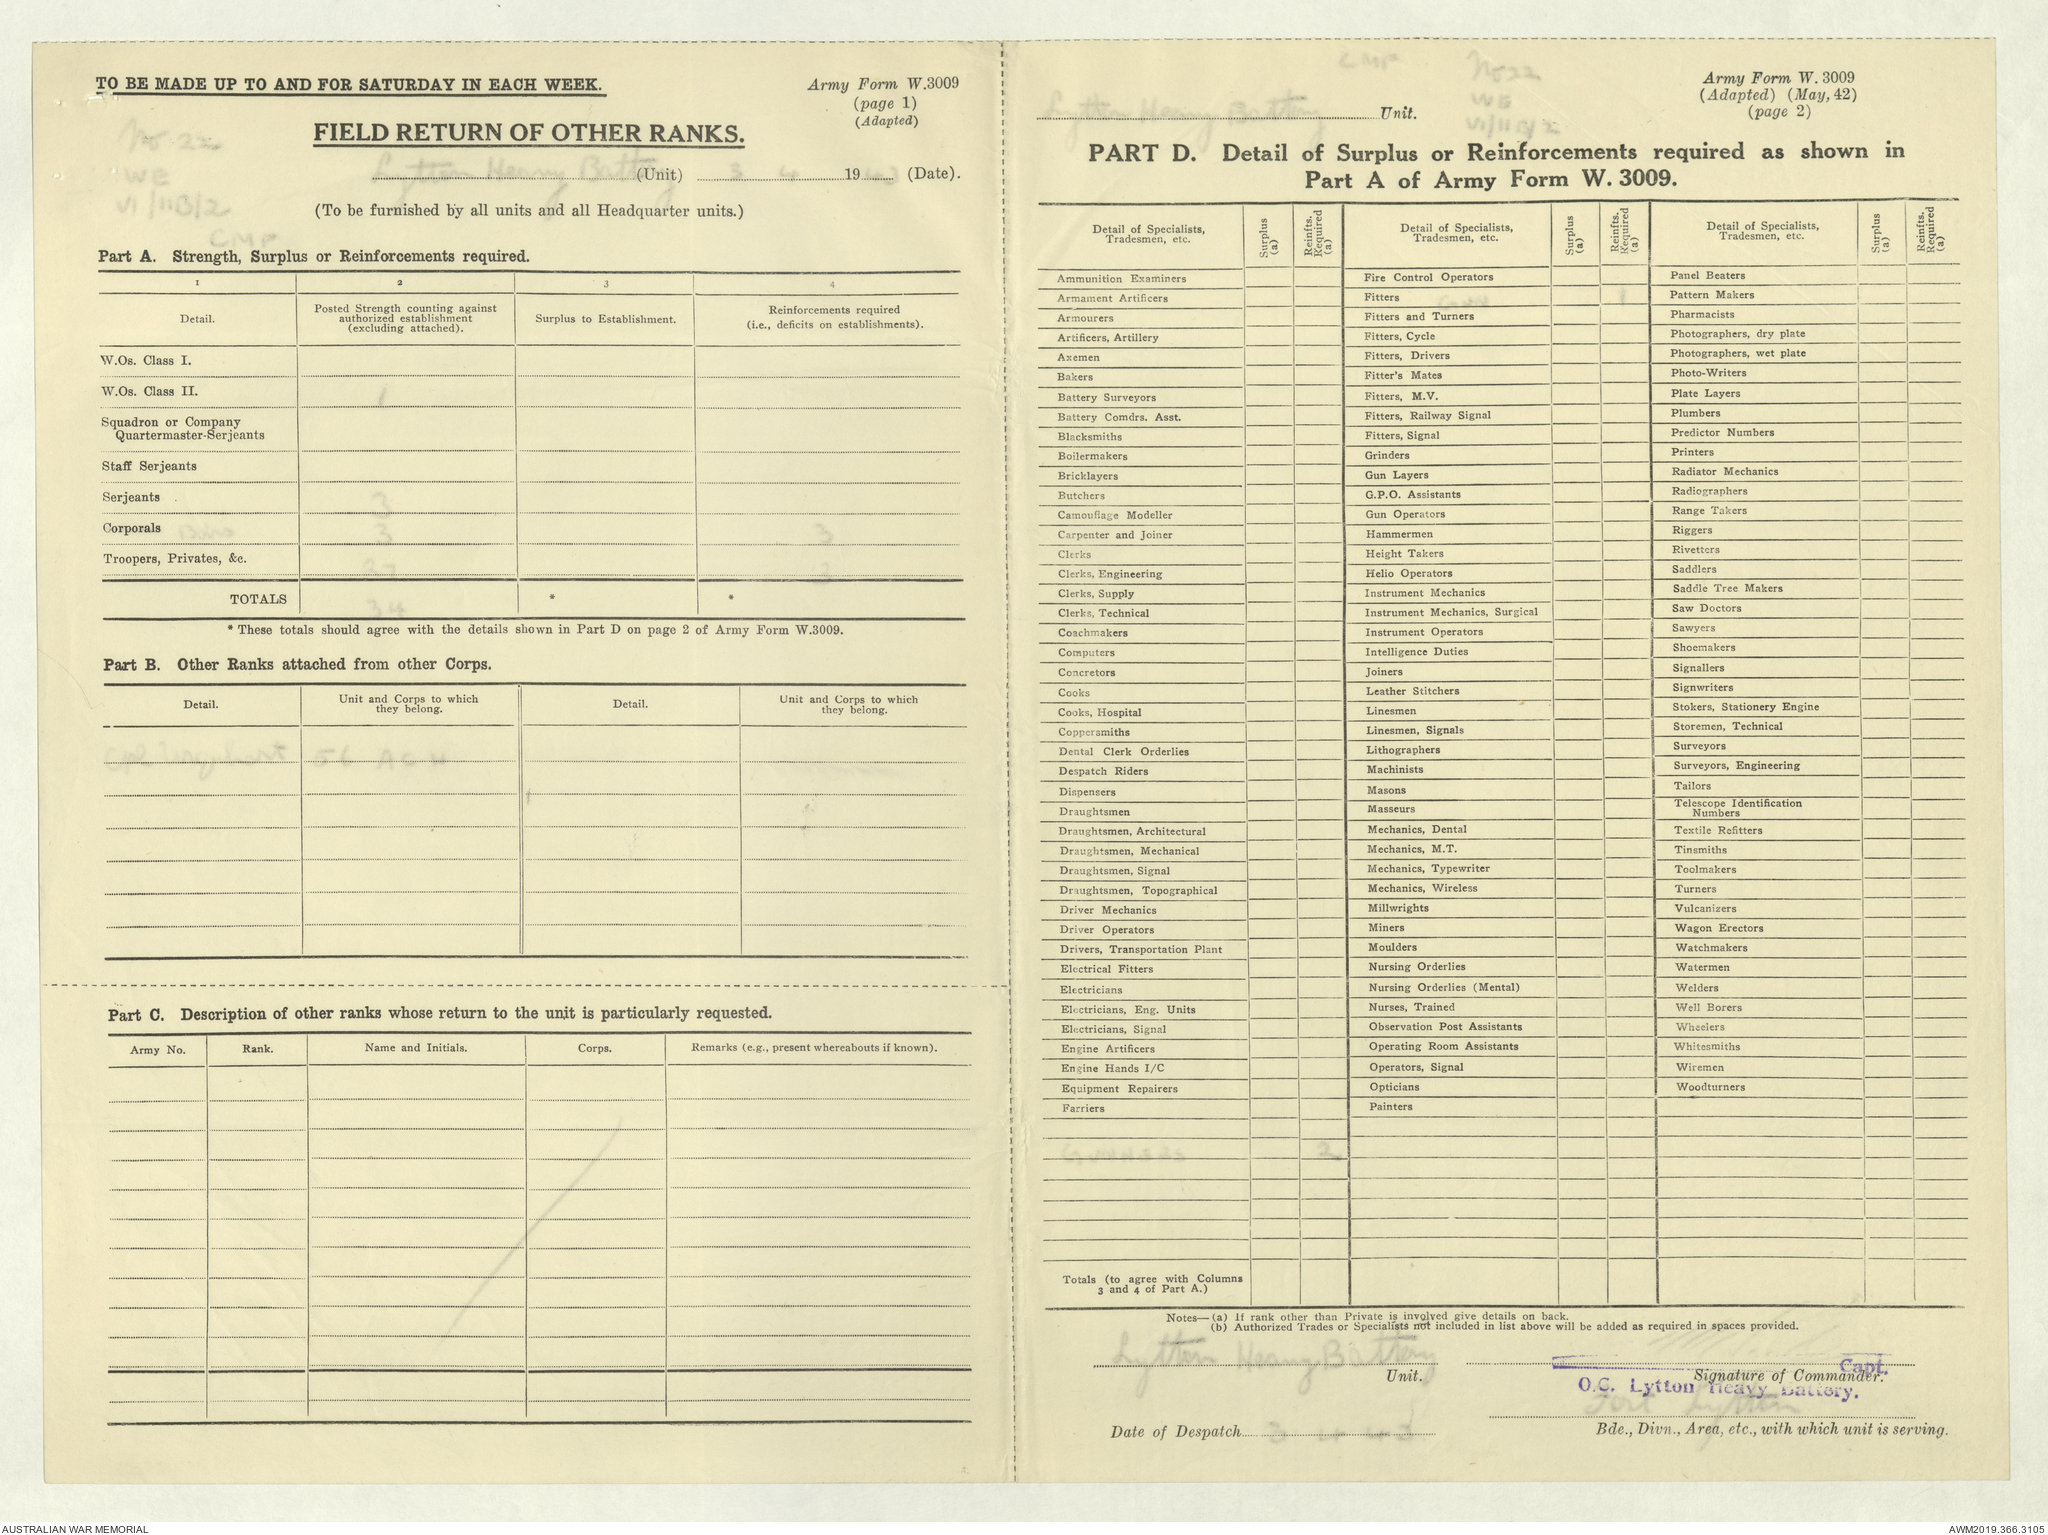 TO BE MADE UP TO AND FOR SATURDAY IN EACH WEEK.
Army Form W.3009
(page 1)
(Adapted)
No. 22
WE
VI/11B/2
CMF
FIELD RETURN OF OTHER RANKS.
Lytton Heavy Battery (Unit) 3 4 1943 (Date).
(To be furnished by all units and all Headquarter units.)
Part A. Strength, Surplus or Reinforcements required.
1 2 3 4
Detail. Posted Strength counting against authorized establishment (excluding attached). Surplus to Establishment. Reinforcements required (i.e., deficits on establishments).
W.Os. Class I.
W.Os. Class II. 1
Squadron or Company
Quartermaster-Serjeants
Staff Serjeants
Serjeants 3
Corporals Bdrs 3 3
Troopers, Privates, &c. 27
TOTALS 34 * *
* These totals should agree with the details shown in Part D on page 2 of Army Form W.3009.
Part B. Other Ranks attached from other Corps.
Detail. Unit and Corps to which they belong. Detail. Unit and Corps to which they belong.
Cpl Urquhart 56 AGH
Part C. Description of other ranks whose return to the unit is particularly requested.
Army No. Rank. Name and Initials. Corps. Remarks (e.g., present whereabouts if known).
CMF
No 22
WE
VI/11B/2
Lytton Heavy Battery Unit.
Army Form W. 3009
(Adapted) (May, 42)
(page 2)
PART D. Detail of Surplus or Reinforcements required as shown in
Part A of Army Form W. 3009.
Detail of Specialists, Tradesmen, etc. Surplus (a) Reinfts. Required (a) Detail of Specialists, Tradesmen, etc. Surplus (a) Reinfts. Required (a) Detail of Specialists, Tradesmen, etc. Surplus (a) Reinfts. Required (a)
Ammunition Examiners Fire Control Operators Panel Beaters
Armament Artificers Fitters Gun 1 Pattern Makers
Armourers Fitters and Turners Pharmacists
Artificers, Artillery Fitters, Cycle Photographers, dry plate
Axemen Fitters, Drivers Photographers, wet plate
Bakers Fitter's Mates Photo-Writers
Battery Surveyors Fitters, M.V. Plate Layers
Battery Comdrs. Asst. Fitters, Railway Signal Plumbers
Blacksmiths Fitters, Signal Predictor Numbers
Boilermakers Grinders Printers
Bricklayers Gun Layers Radiator Mechanics
Butchers G.P.O. Assistants Radiographers
Camouflage Modeller Gun Operators Range Takers
Carpenter and Joiner Hammermen Riggers
Clerks Height Takers Rivetters
Clerks, Engineering Helio Operators Saddlers
Clerks, Supply Instrument Mechanics Saddle Tree Makers
Clerks, Technical Instrument Mechanics, Surgical Saw Doctors
Coachmakers Instrument Operators Sawyers
Computers Intelligence Duties Shoemakers
Concretors Joiners Signallers
Cooks Leather Stitchers Signwriters
Cooks, Hospital Linesmen Stokers, Stationery Engine
Coppersmiths Linesmen, Signals Storemen, Technical
Dental Clerk Orderlies Lithographers Surveyors
Despatch Riders Machinists Surveyors, Engineering
Dispensers Masons Tailors
Draughtsmen Masseurs Telescope Identification Numbers
Draughtsmen, Architectural Mechanics, Dental Textile Refitters
Draughtsmen, Mechanical Mechanics, M.T. Tinsmiths
Draughtsmen, Signal Mechanics, Typewriter Toolmakers
Draughtsmen, Topographical Mechanics, Wireless Turners
Driver Mechanics Millwrights Vulcanizers
Driver Operators Miners Wagon Erectors
Drivers, Transportation Plant Moulders Watchmakers
Electrical Fitters Nursing Orderlies Watermen
Electricians Nursing Orderlies (Mental) Welders
Electricians, Eng. Units Nurses, Trained Well Borers
Electricians, Signal Observation Post Assistants Wheelers
Engine Artificers Operating Room Assistants Whitesmiths
Engine Hands I/C Operators, Signal Wiremen
Equipment Repairers Opticians Woodturners
Farriers Painters
GUNNERS 2
Totals (to agree with Columns
3 and 4 of Part A.)
Notes—(a) If rank other than Private is involved give details on back.
(b) Authorized Trades or Specialists not included in list above will be added as required in spaces provided.
Lytton Heavy Battery
Unit.
Capt.
Signature of Commander.
O.C. Lytton Heavy Battery.
Fort Lytton
Date of Despatch 3 4 43
Bde., Divn., Area, etc., with which unit is serving.
AUSTRALIAN WAR MEMORIAL
AWM2019.366.3105